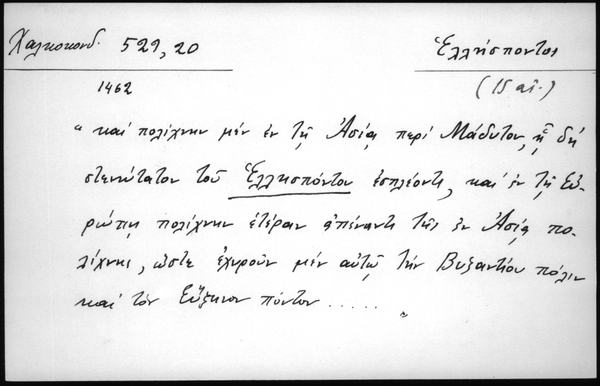 Χαλκοκονδ. 529,20
Ἑλλήσποντος
1462
(15 αἰ.)
“ καί πολίχνην μέν ἐν τῇ Ἀσίᾳ περί Μάδυτον, ᾗ δή
στενώτατον τοῦ Ἑλλησπόντου ἐσπλέοντι, καί ἐν τῇ Εὐ-
ρώπῃ πολίχνην ἑτέραν ἀπέναντι τῆς ἐν Ἀσίᾳ πο-
λίχνης, ὥστε ἐχυροῦν μέν αὐτῷ τήν Βυζαντίου πόλιν
καί τόν Εὔξεινον πόντον ..... ”